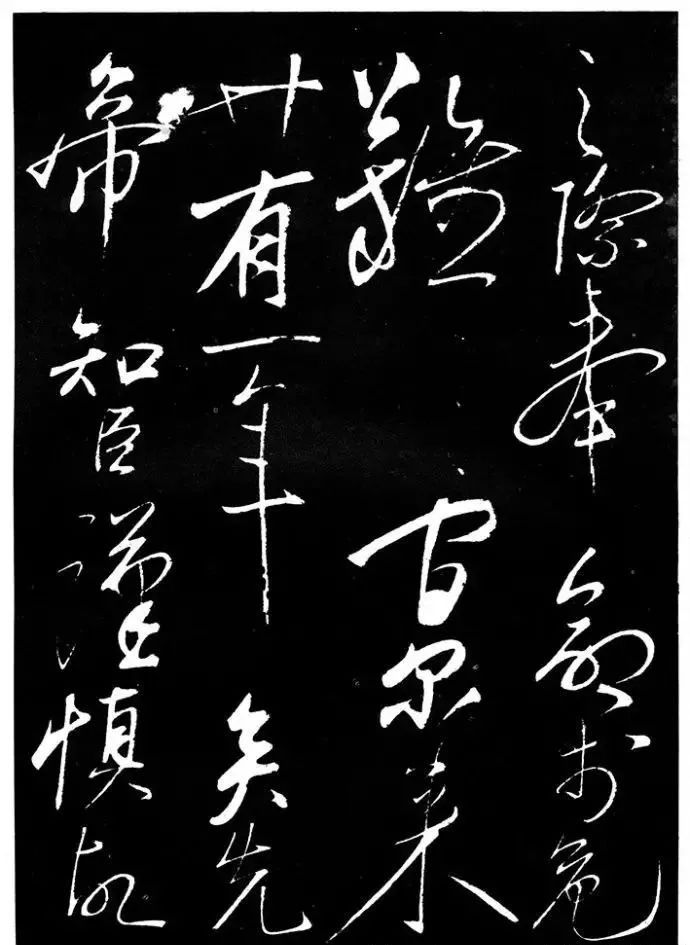 之際奉命於危
難間爾来
廿有一年矣先
帝知臣謹慎故